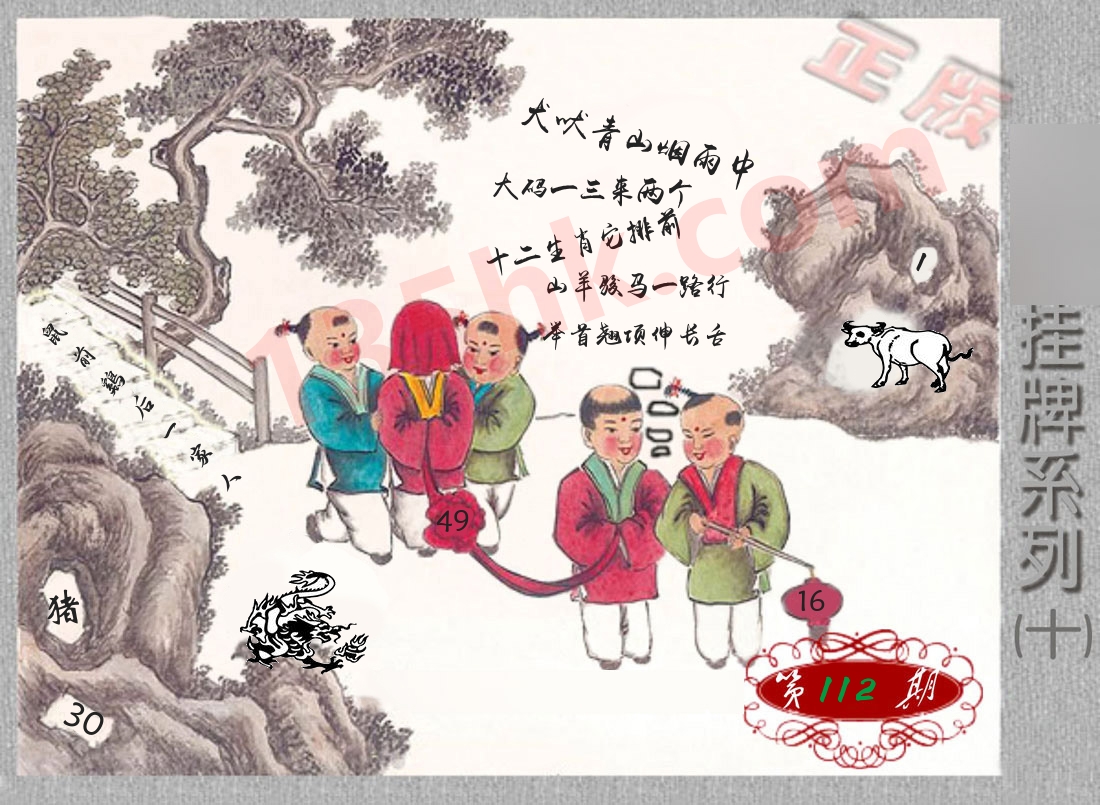 正版
犬吠青山烟雨中
大码一三来两个
十二生肖它排前
山羊骏马一路行
举首翘项伸长舌
185hk.com
1
鼠前鷄后一家人
49
16
猪
30
第112期
挂牌系列(十)